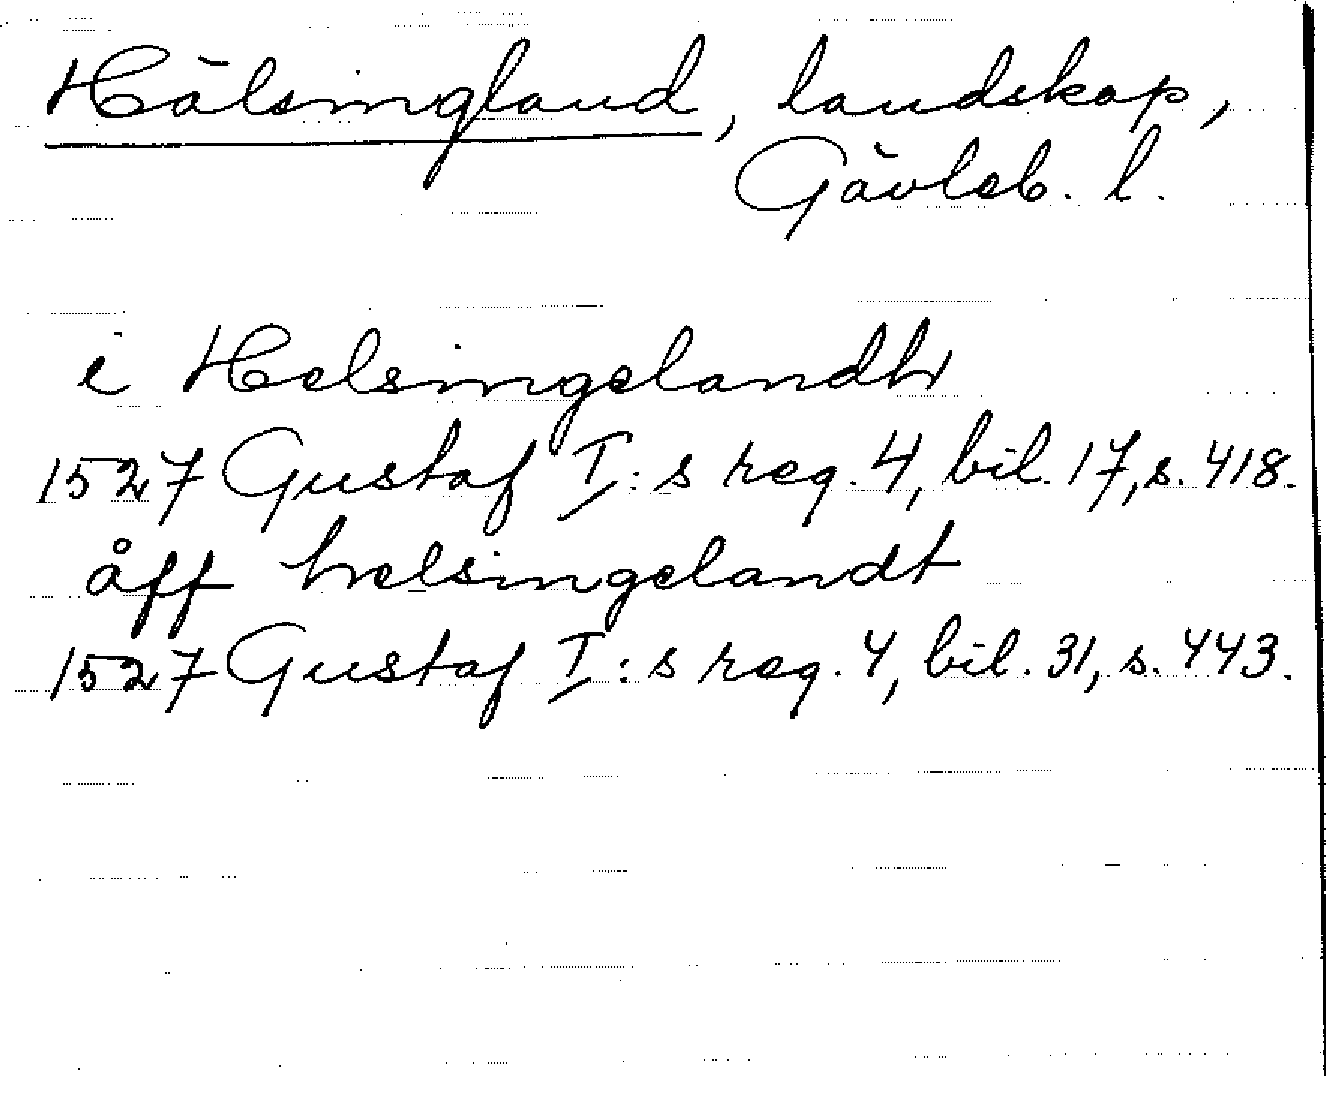 Hälsingland, landskap,
Gävleb. l.
i Helsingelandh
1527 Gustaf I:s reg. 4, bil. 17, s. 418.
åff helsingelandt
1527 Gustaf I:s reg. 4, bil. 31, s. 443.